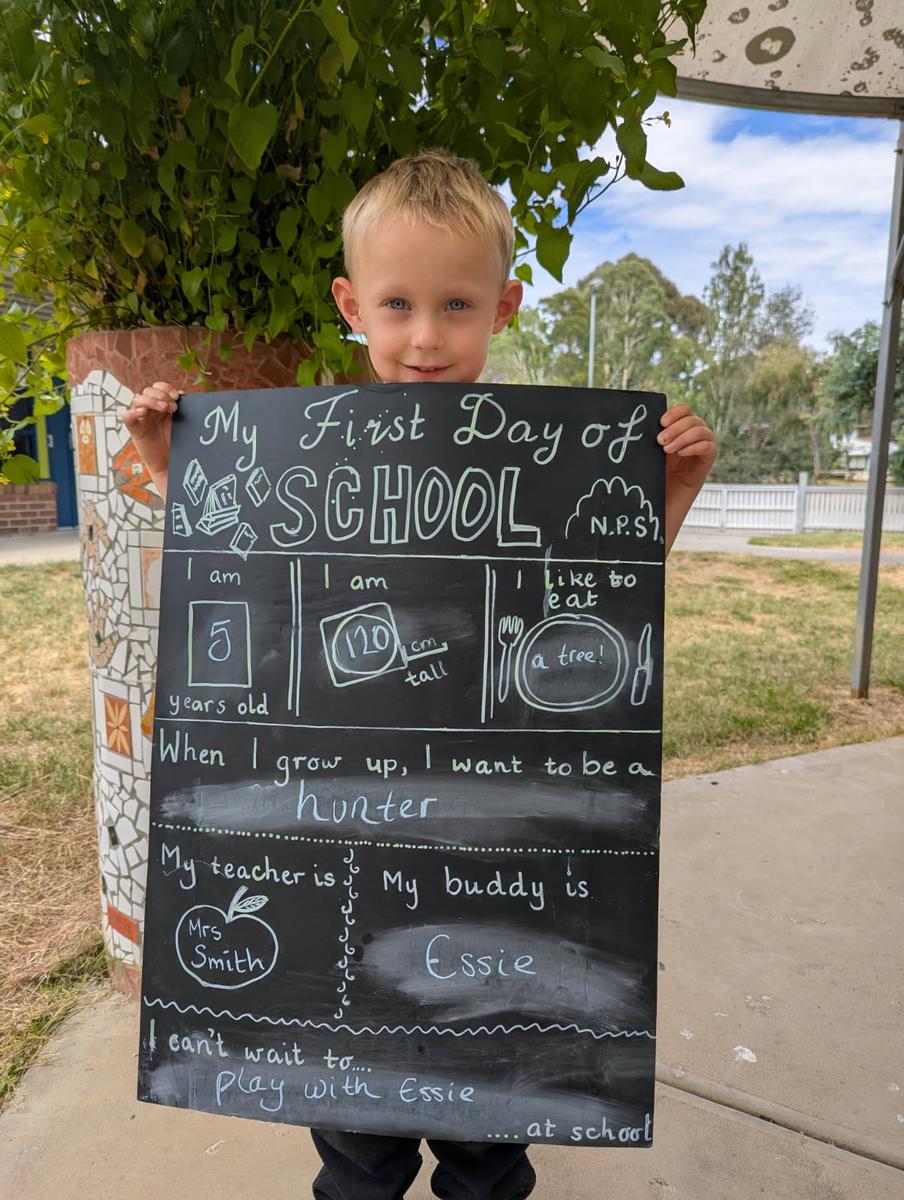 My First Day of
SCHOOL
N.P.S
I am
5
years old
I am
120 cm
tall
I like to
eat
a tree!
When I grow up, I want to be a
hunter
My teacher is
Mrs
Smith
My buddy is
Essie
I can't wait to....
play with Essie
.... at school